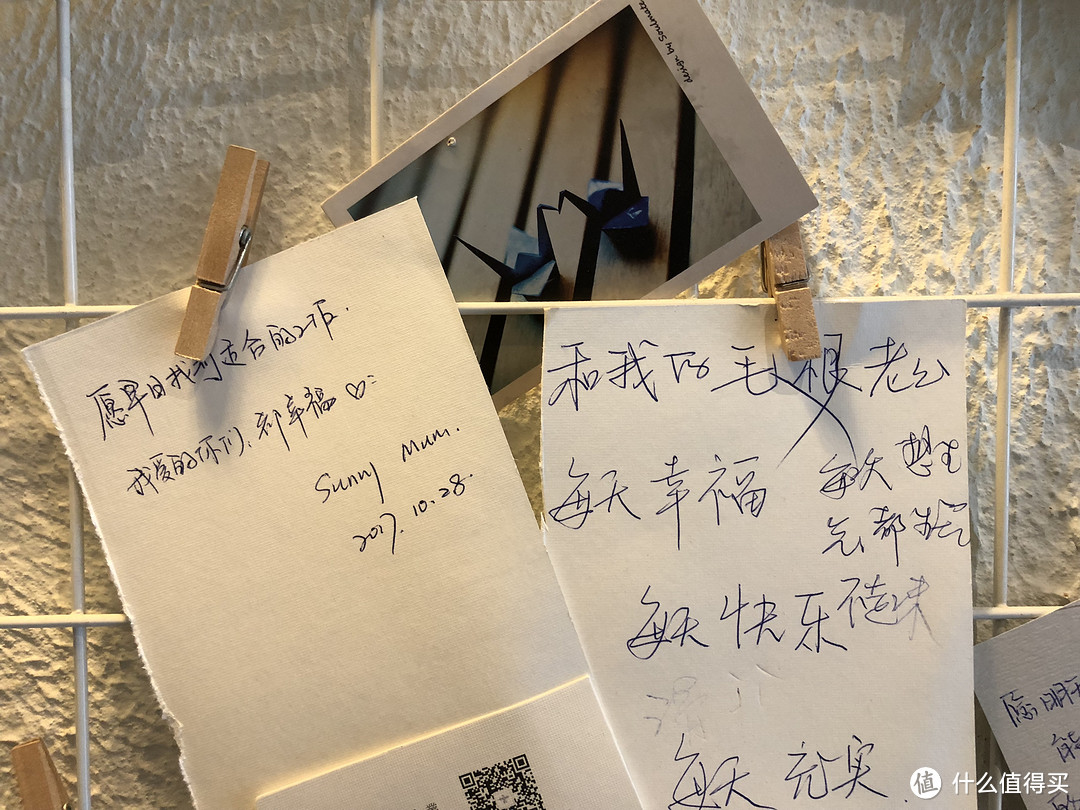 design by Soulmate
愿早日找到适合的工作.
我爱的你们,都幸福♡
Sunny Mum.
2017.10.28.
和我的毛 根 老公
每天 幸福
每天 想
都
每天 快乐
每天 充实
愿
能
值 什么值得买